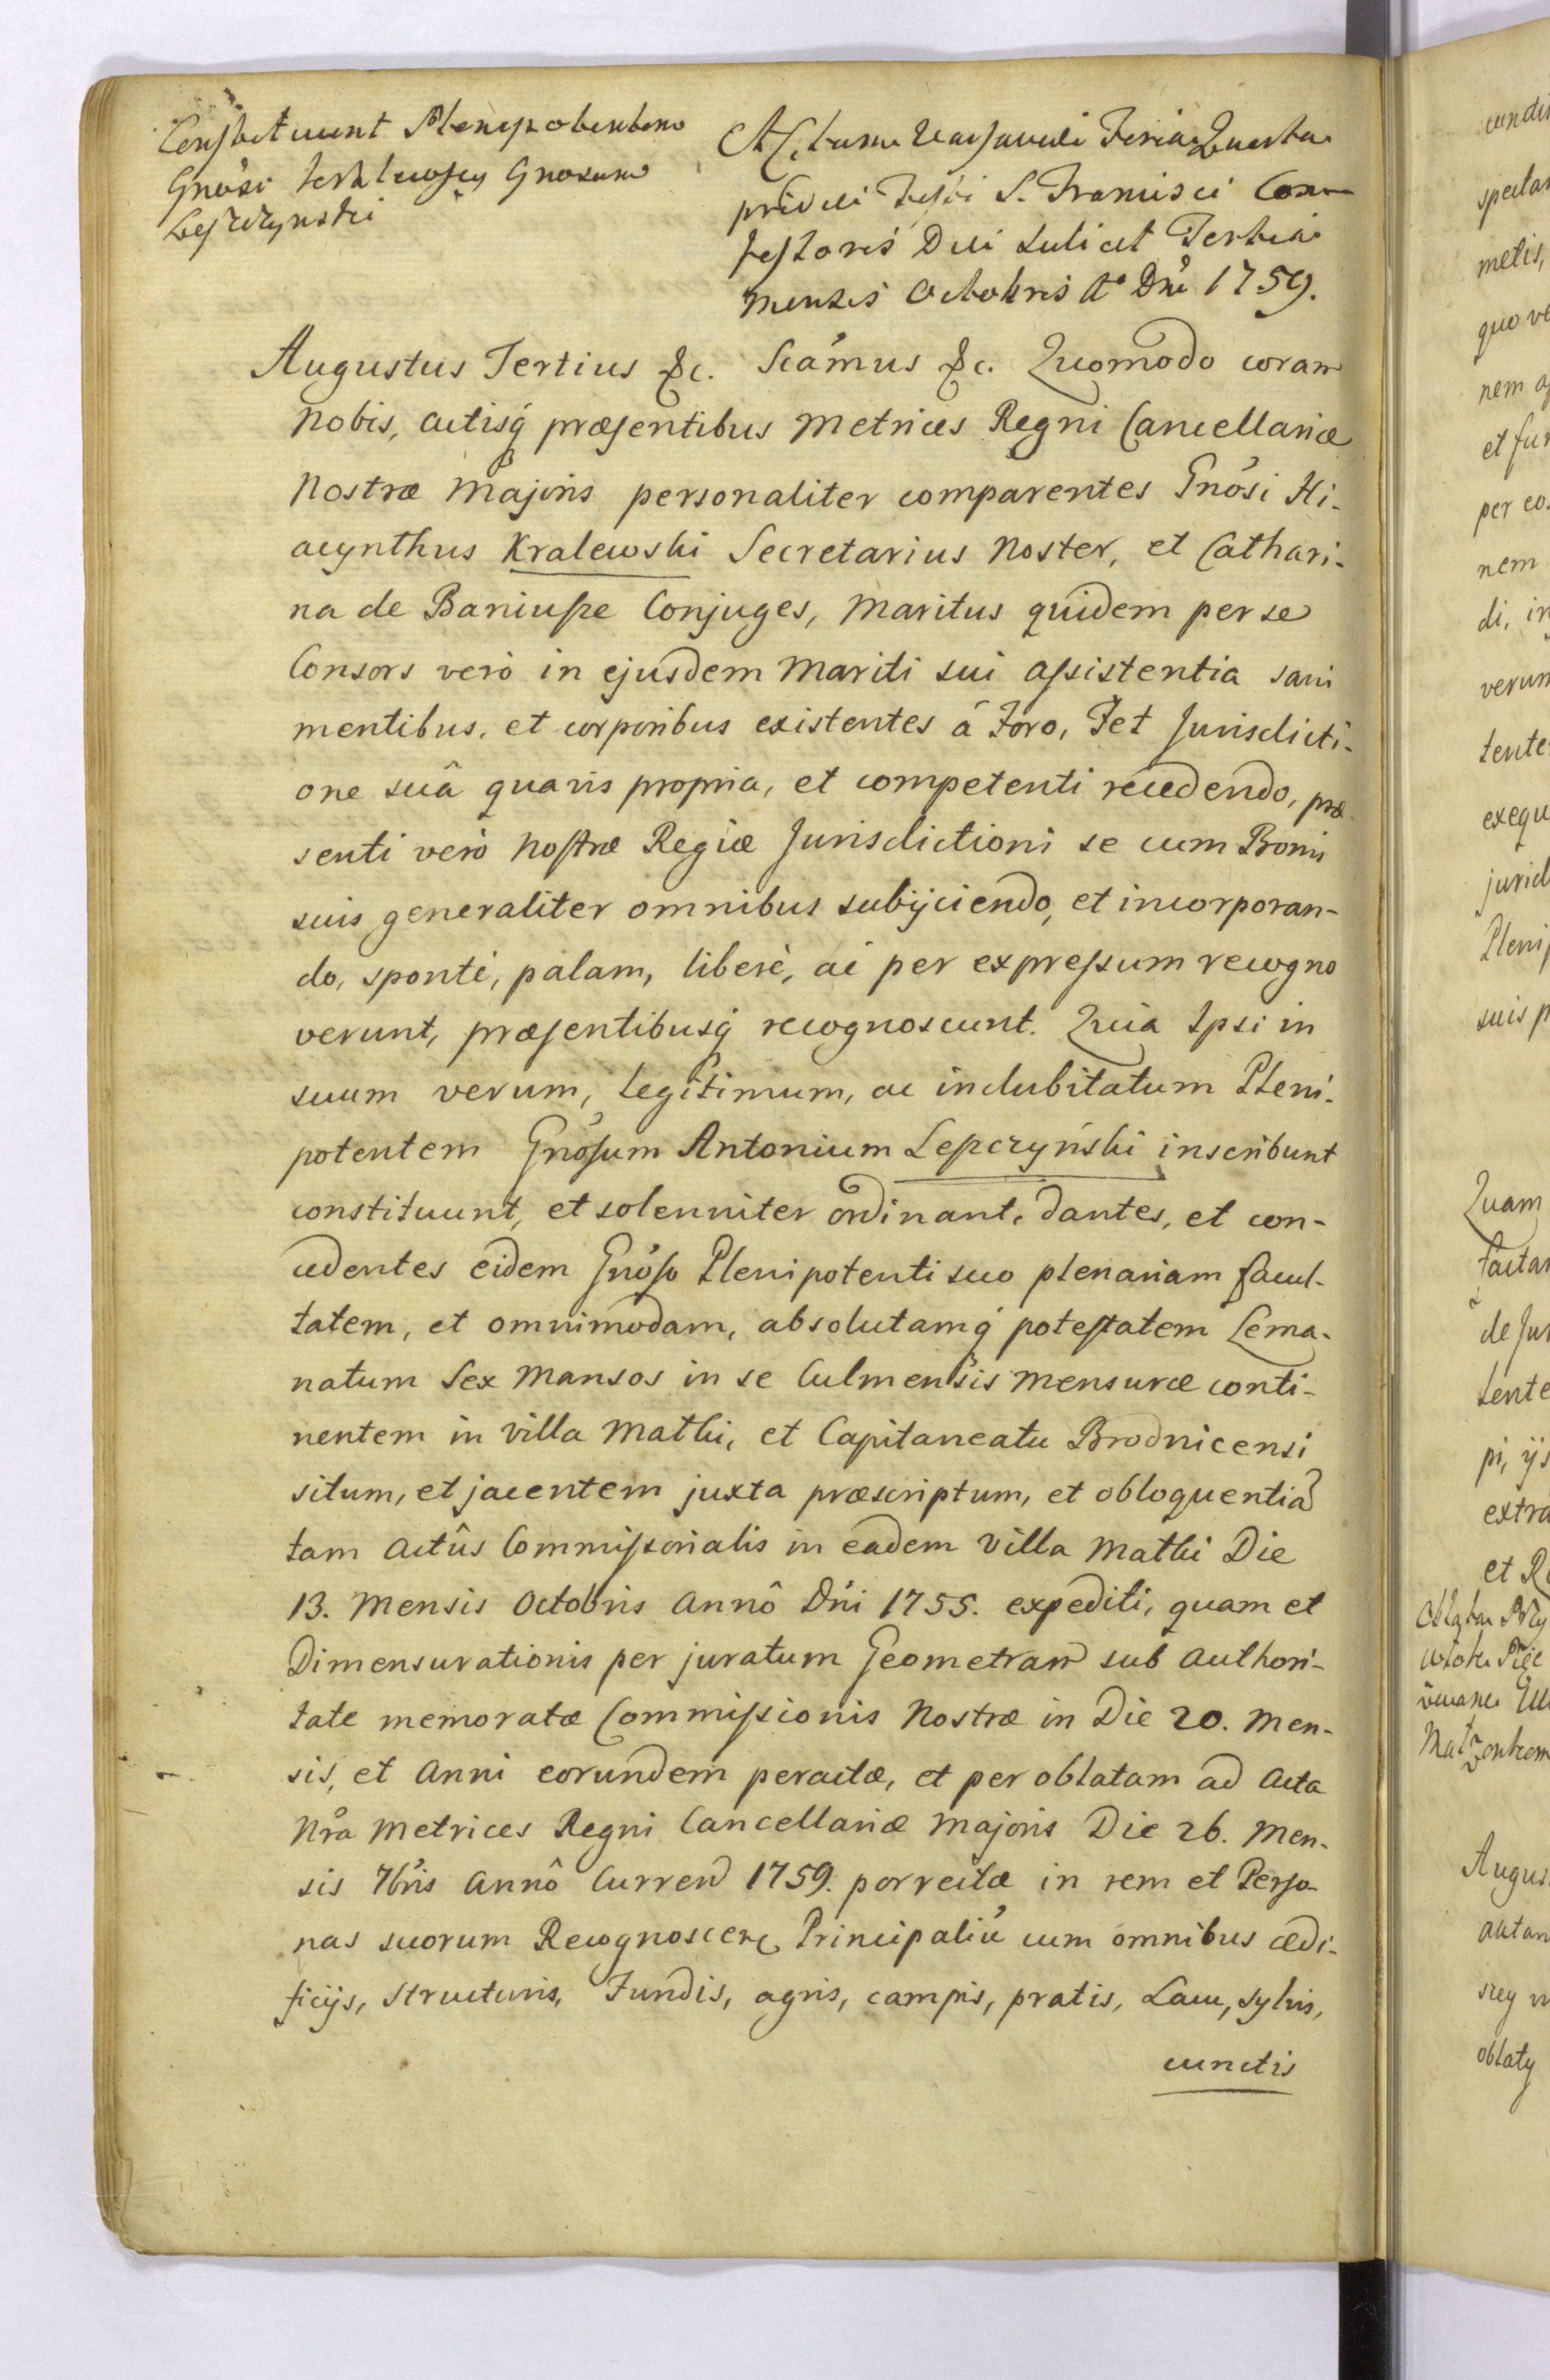 Constituunt Plenipotentem
Gnosi Kralewscy Gnosum
Lepczynski
Actum Varsaviæ Feria Quarta
pridie Festi S. Francisci Con
fessoris Die scilicet Tertia
mensis Octobris Aº Dni 1759.
Augustus Tertius &c. Scamus &c. Quomodo coram
Nobis, actisq́ præsentibus Metrices Regni Cancellariæ
Nostræ Majoris personaliter comparentes Gnosi Hi-
acynthus Kralewski Secretarius Noster, et Cathari-
na de Baniusze Conjuges, Maritus quidem per se
Consors verò in ejusdem Mariti sui assistentia sani
mentibus, et corporibus existentes á Foro, Jet Jurisdicti-
one suâ quavis propria, et competenti recedendo, præ
senti verò Nostræ Regiæ Jurisdictioni se cum Bonis
suis generaliter omnibus subijciendo, et incorporan-
do, sponté, palam, liberè, ac per expressum recogno
verunt, præsentibusq́ recognoscunt. Quia Ipsi in
suum verum, legitimum, ac indubitatum Pleni-
potentem Gnosum Antonium Lepczyński inscribunt
constituunt, et solenniter ordinant, dantes, et con-
cedentes eidem Gnoso Plenipotenti suo plenariam facul-
tatem, et omnimodam, absolutamq́ potestatem Lema-
natum Sex Mansos in se Culmensis mensuræ conti-
nentem in Villa Mathi, et Capitaneatu Brodnicensi
situm, et jacentem juxta præscriptum, et obloquentiã
tam Actûs Commissorialis in eadem Villa Mathi Die
13. Mensis Octobris Annô Dni 1755. expediti, quam et
Dimensurationis per juratum Geometram sub Authori-
tate memoratæ Commissionis Nostræ in Die 20. Men-
sis, et Anni eorundem peractæ, et per oblatam ad Acta
Nra Metrices Regni Cancellariæ Majoris Die 26. Men-
sis 7bris Annô Curren 1759. porrectæ in rem et Perso-
nas suorum Recognoscen Principaliu cum omnibus ædi-
ficijs, structuris, Fundis, agris, campis, pratis, Lacu, sylvis,
cunctis